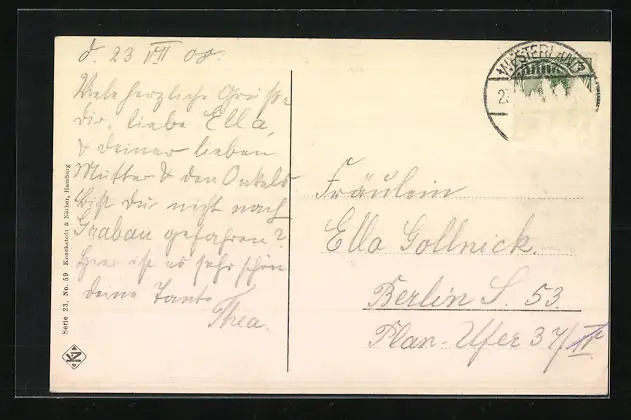 d. 23 VII 08.
Viele herzliche Grüsse
dir, liebe Ella,
& deiner lieben
Mutter & den Onkels
bist du nicht nach
Grabau gefahren?
hier ist es sehr schön
deine Tante
Thea.
WESTERLAND
2
Fräulein
Ella Gollnick.
Berlin S. 53
Plan-Ufer 37/II
Serie 23, No. 59 Knackstedt & Näther, Hamburg